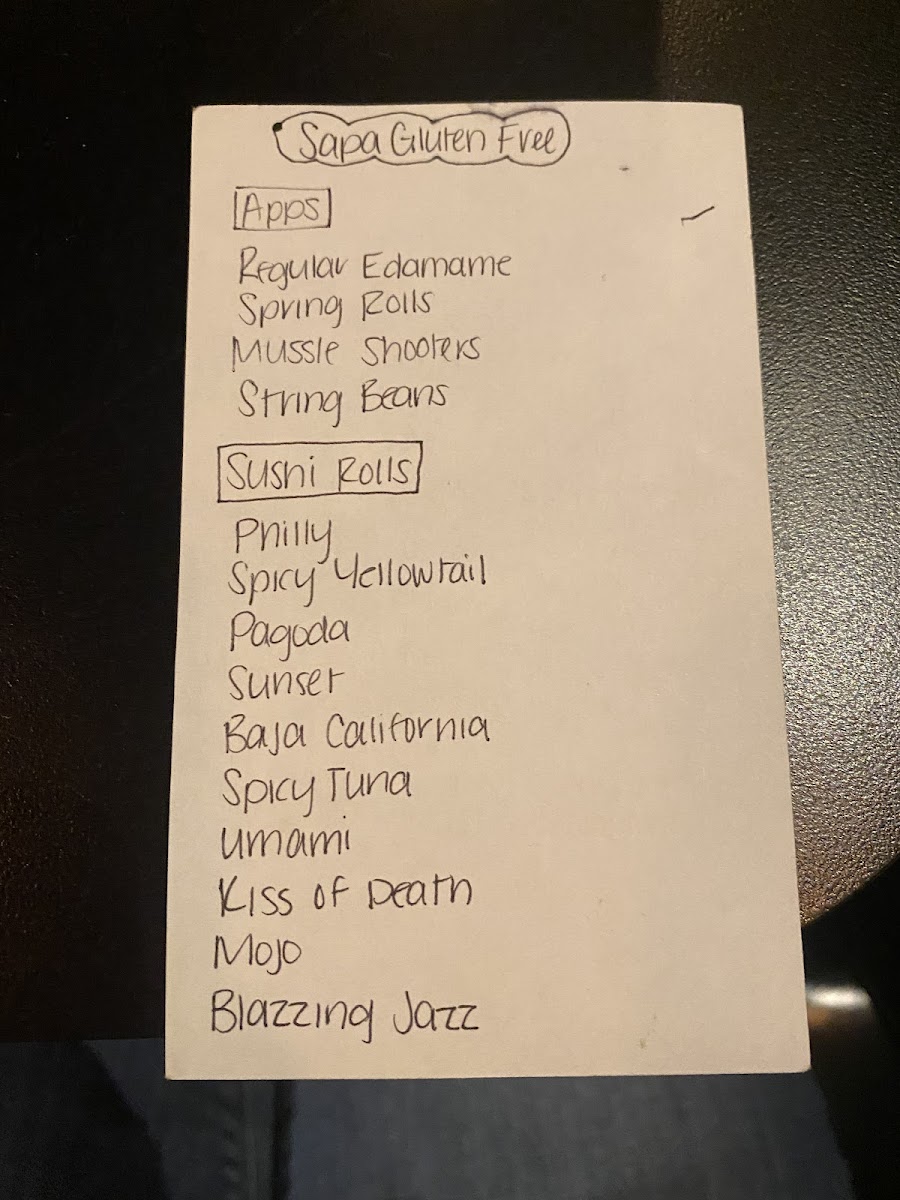 Sapa Gluten Free
Apps
Regular Edamame
Spring Rolls
Mussle Shooters
String Beans
Sushi Rolls
Philly
Spicy Yellowtail
Pagoda
Sunset
Baja California
Spicy Tuna
Umami
Kiss of Death
Mojo
Blazzing Jazz